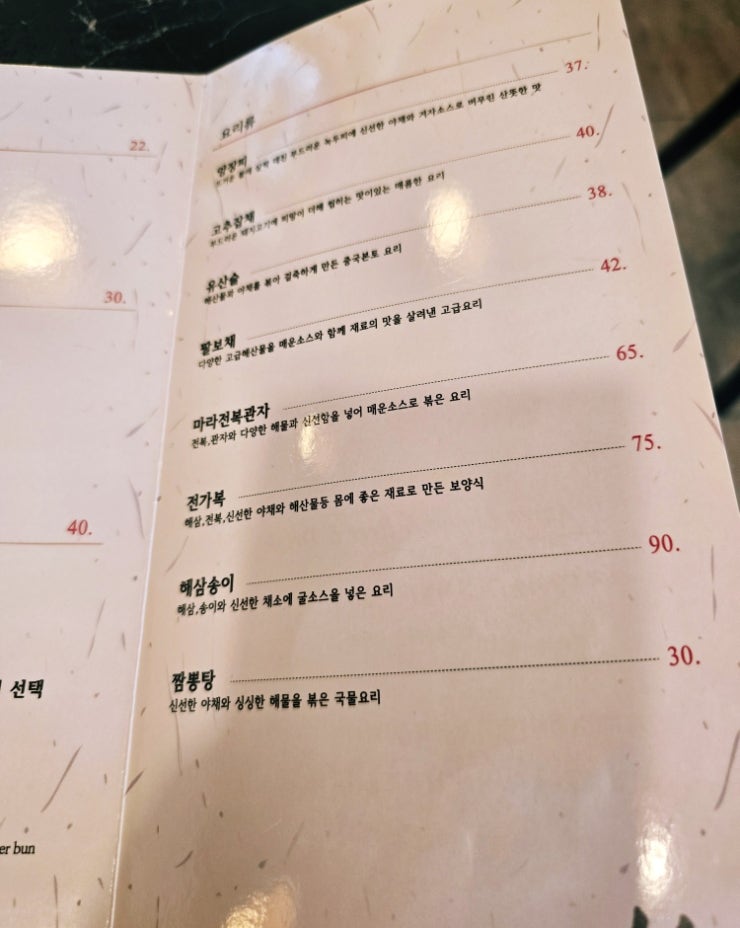 22.
30.
40.
선택
er bun
요리류
양장피 37.
뜨거운 물에 살짝 데친 부드러운 녹두피에 신선한 야채와 겨자소스로 버무린 산뜻한 맛
고추잡채 40.
부드러운 돼지고기에 피망이 더해 씹히는 맛이있는 매콤한 요리
유산슬 38.
해산물과 야채를 볶아 걸죽하게 만든 중국본토 요리
팔보채 42.
다양한 고급해산물을 매운소스와 함께 재료의 맛을 살려낸 고급요리
마라전복관자 65.
전복,관자와 다양한 해물과 신선함을 넣어 매운소스로 볶은 요리
전가복 75.
해삼,전복,신선한 야채와 해산물등 몸에 좋은 재료로 만든 보양식
해삼송이 90.
해삼,송이와 신선한 채소에 굴소스을 넣은 요리
짬뽕탕 30.
신선한 야채와 싱싱한 해물을 볶은 국물요리